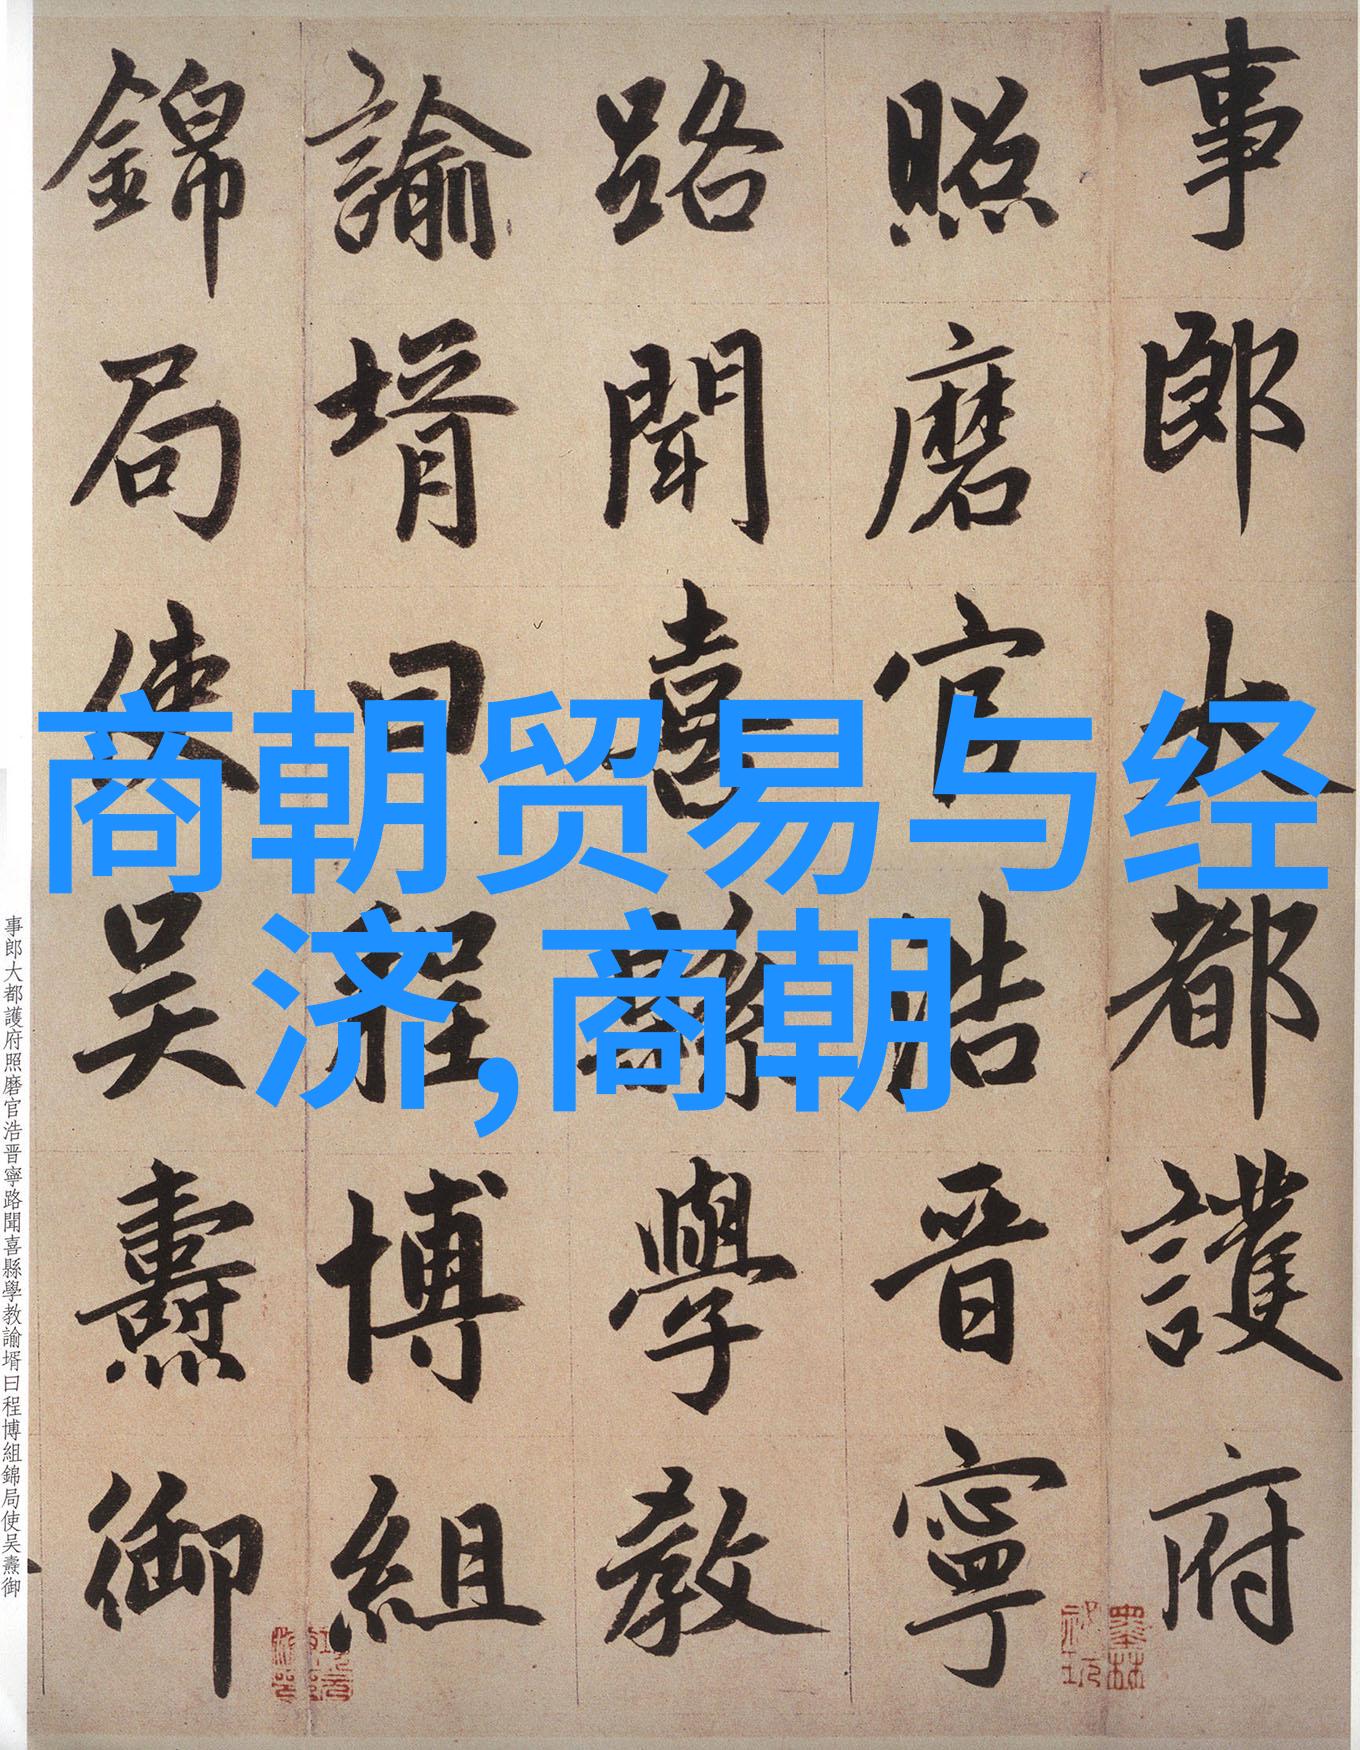 事郎大都護府
照磨官浩晋寧
路聞喜縣學教
諭壻曰程博組
錦局使吴燾御
商朝贸易与经
济,商朝
事郎大都護府照磨官浩晋寧路聞喜縣學教諭壻曰程博組錦局使吴燾御